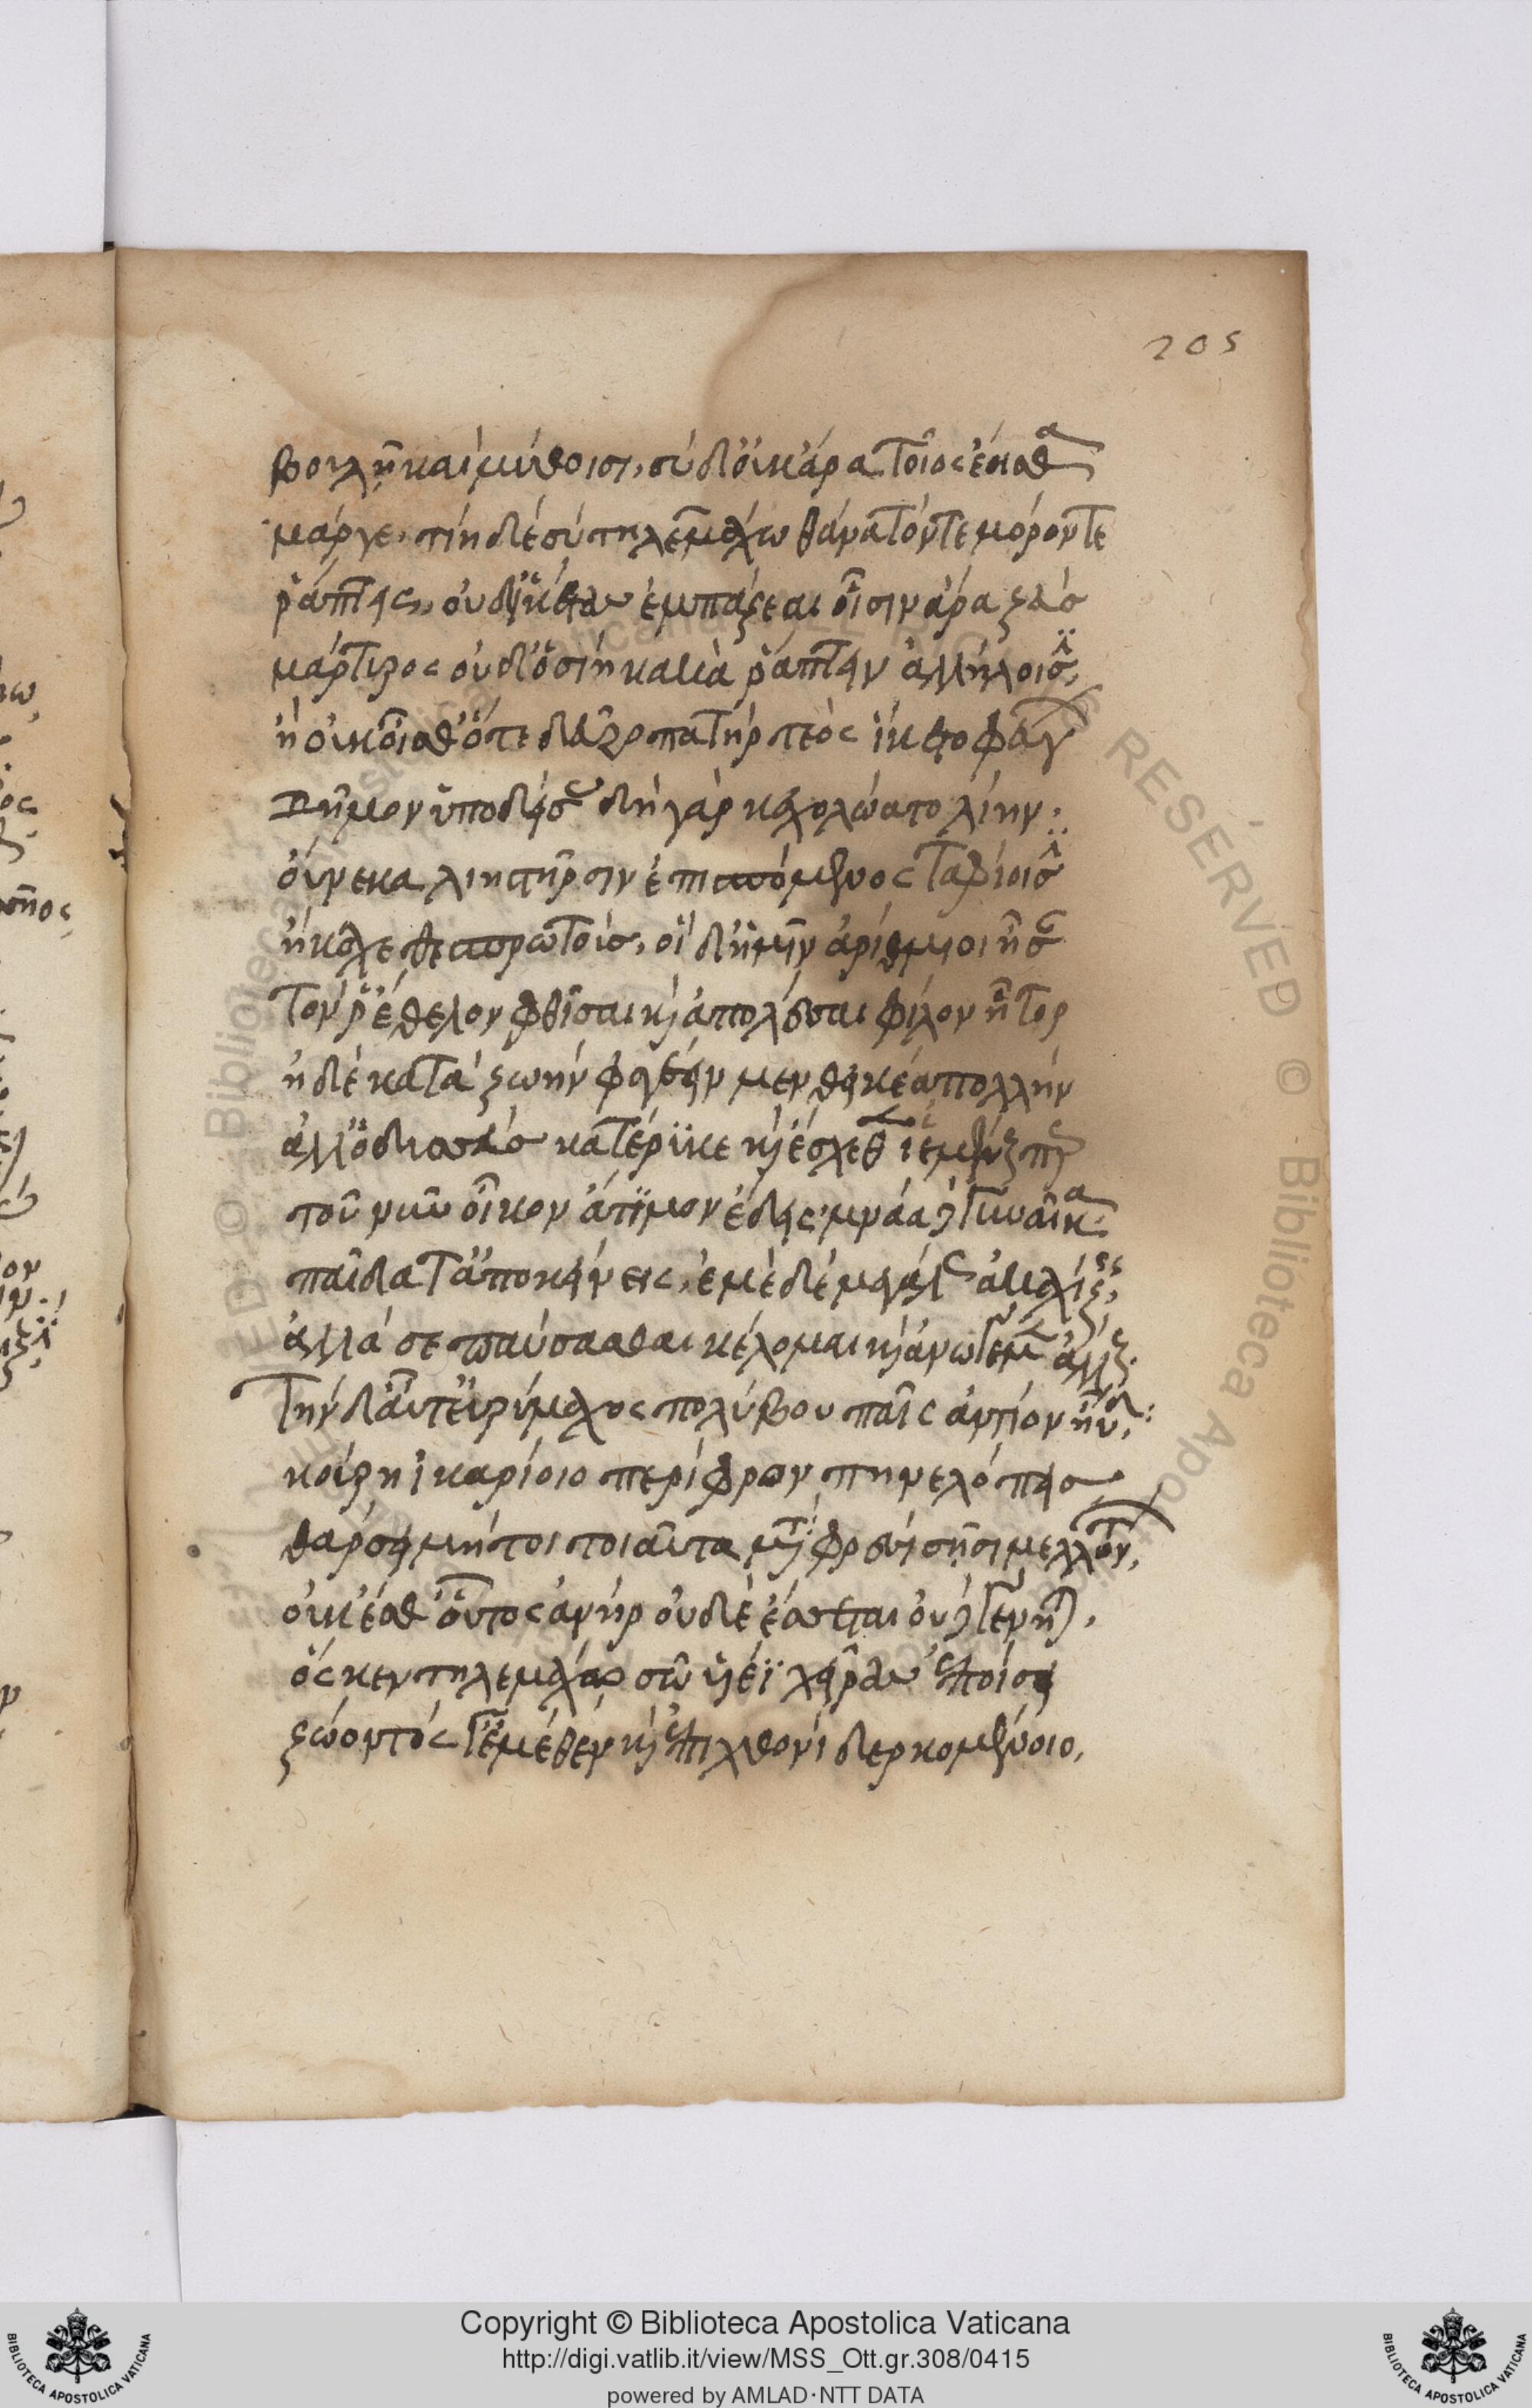 205
βουλῇ καὶ μύθοισι, σὺ δ' οὐκ ἄρα τοῖος ἔησθα
μάργε, τίη δὲ σὺ τηλεμάχω θάνατόν τε μόρον τε
ῥάπτεις, οὐδ' ἱκέτας ἐμπάζεαι οἷσιν ἄρα ζεὺς
μάρτυρος οὐδ' ὁσίη κακὰ ῥάπτειν ἀλλήλοισιν,
ἢ οὐκ οἶσθ' ὅτε δεῦρο πατὴρ τεὸς ἵκετο φεύγων
δῆμον ὑποδείσας δὴ γὰρ κεχολώατο λίην·
οὕνεκα ληιστῆρσιν ἐπισπόμενος ταφίοισιν
ἤκαχε θεσπρωτούς, οἳ δ' ἡμῖν ἄρθμιοι ἦσαν
τόν ῥ' ἔθελον φθῖσαι καὶ ἀπολέσαι φίλον ἦτορ
ἠδὲ κατὰ ζωὴν φαγέειν μενοεικέα πολλήν
ἀλλ' ὀδυσεὺς κατέρυκε καὶ ἔσχεθεν ἱεμένους περ
τοῦ νῦν οἶκον ἄτιμον ἔδεις, μνάᾳ δὲ γυναῖκα
παῖδά τ' ἀποκτείνεις, ἐμὲ δὲ μεγάλως ἀκαχίζεις,
ἀλλά σε παύσασθαι κέλομαι καὶ ἀνωγέμεν ἄλλους.
Τὴν δ' αὖτ' εὐρύμαχος πολύβου παῖς ἀντίον ηὔδα:
κούρη ἰκαρίοιο περίφρων πηνελόπεια
θάρσει μή τοι ταῦτα μετὰ φρεσὶ σῇσι μελόντων,
οὐκ ἔσθ' οὗτος ἀνὴρ οὐδὲ ἔσσεται οὐδὲ γένηται,
ὅς κεν τηλεμάχῳ σῷ υἱέϊ χεῖρας ἐποίσει
ζώοντός γ' ἐμέθεν καὶ ἐπὶ χθονὶ δερκομένοιο,
Copyright © Biblioteca Apostolica Vaticana
http://digi.vatlib.it/view/MSS_Ott.gr.308/0415
powered by AMLAD·NTT DATA
BIBLIOTECA APOSTOLICA VATICANA
BIBLIOTECA APOSTOLICA VATICANA